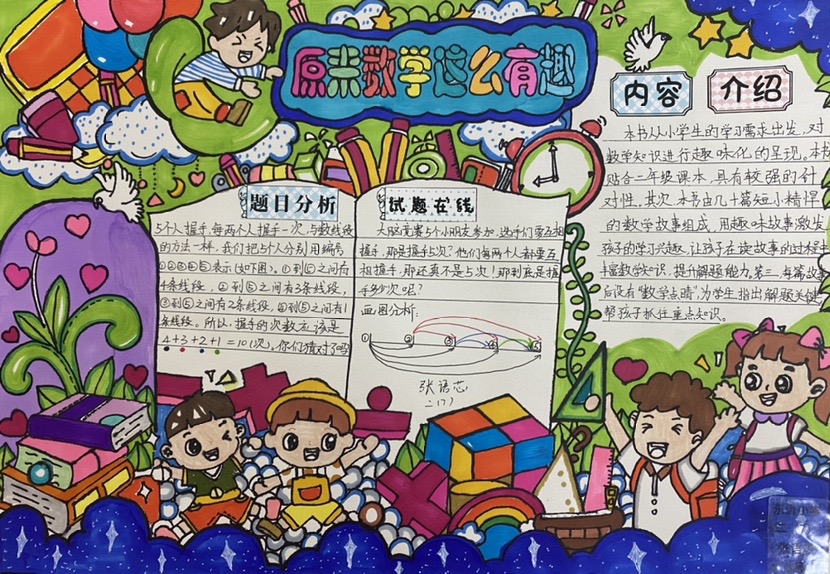 原来数学这么有趣
内容 介绍
本书从小学生的学习需求出发,对
数学知识进行趣味化的呈现。本书
贴合二年级课本,具有较强的针
对性。其次,本书由几十篇短小精悍
的数学故事组成,用趣味故事激发
孩子的学习兴趣,让孩子在读故事的过程中
丰富数学知识,提升解题能力。第三,每篇故事
后设有“数学点睛”,为学生指出解题关键
帮孩子抓住重点知识。
题目分析
5个人握手,每两个人握手一次,与数线段
的方法一样,我们把5个人分别用编号
①②③④⑤表示(如下图)。①到⑤之间有
4条线段,②到⑤之间有3条线段,
③到⑤之间有2条线段,④到⑤之间有1
条线段。所以,握手的次数应该是
4+3+2+1=10(次),你们猜对了吗
试题在线
大脑竞赛5个小朋友参加,选手们要互相
握手,那是握手5次?他们每两个人都要互
相握手,那还真不是5次!那到底是握
手多少次呢?
画图分析:
① ② ③ ④ ⑤
张语芯
二(7)